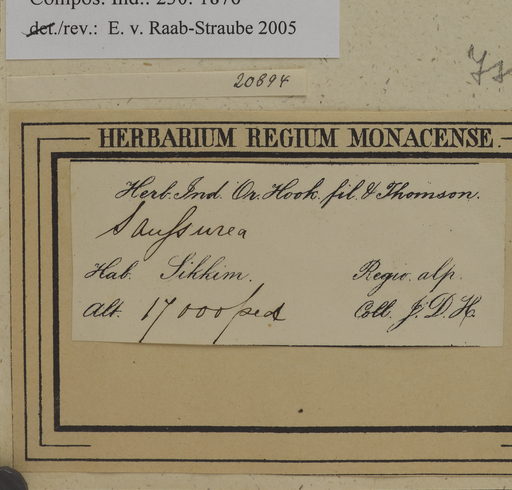 Compos. Ind.: 230. 1876
det./rev.: E. v. Raab-Straube 2005
20894
HERBARIUM REGIUM MONACENSE.
Herb. Ind. Or. Hook. fil. & Thomson.
Saussurea
Hab. Sikkim. Regio. alp.
Alt. 17000 ped Coll. J. D. H.